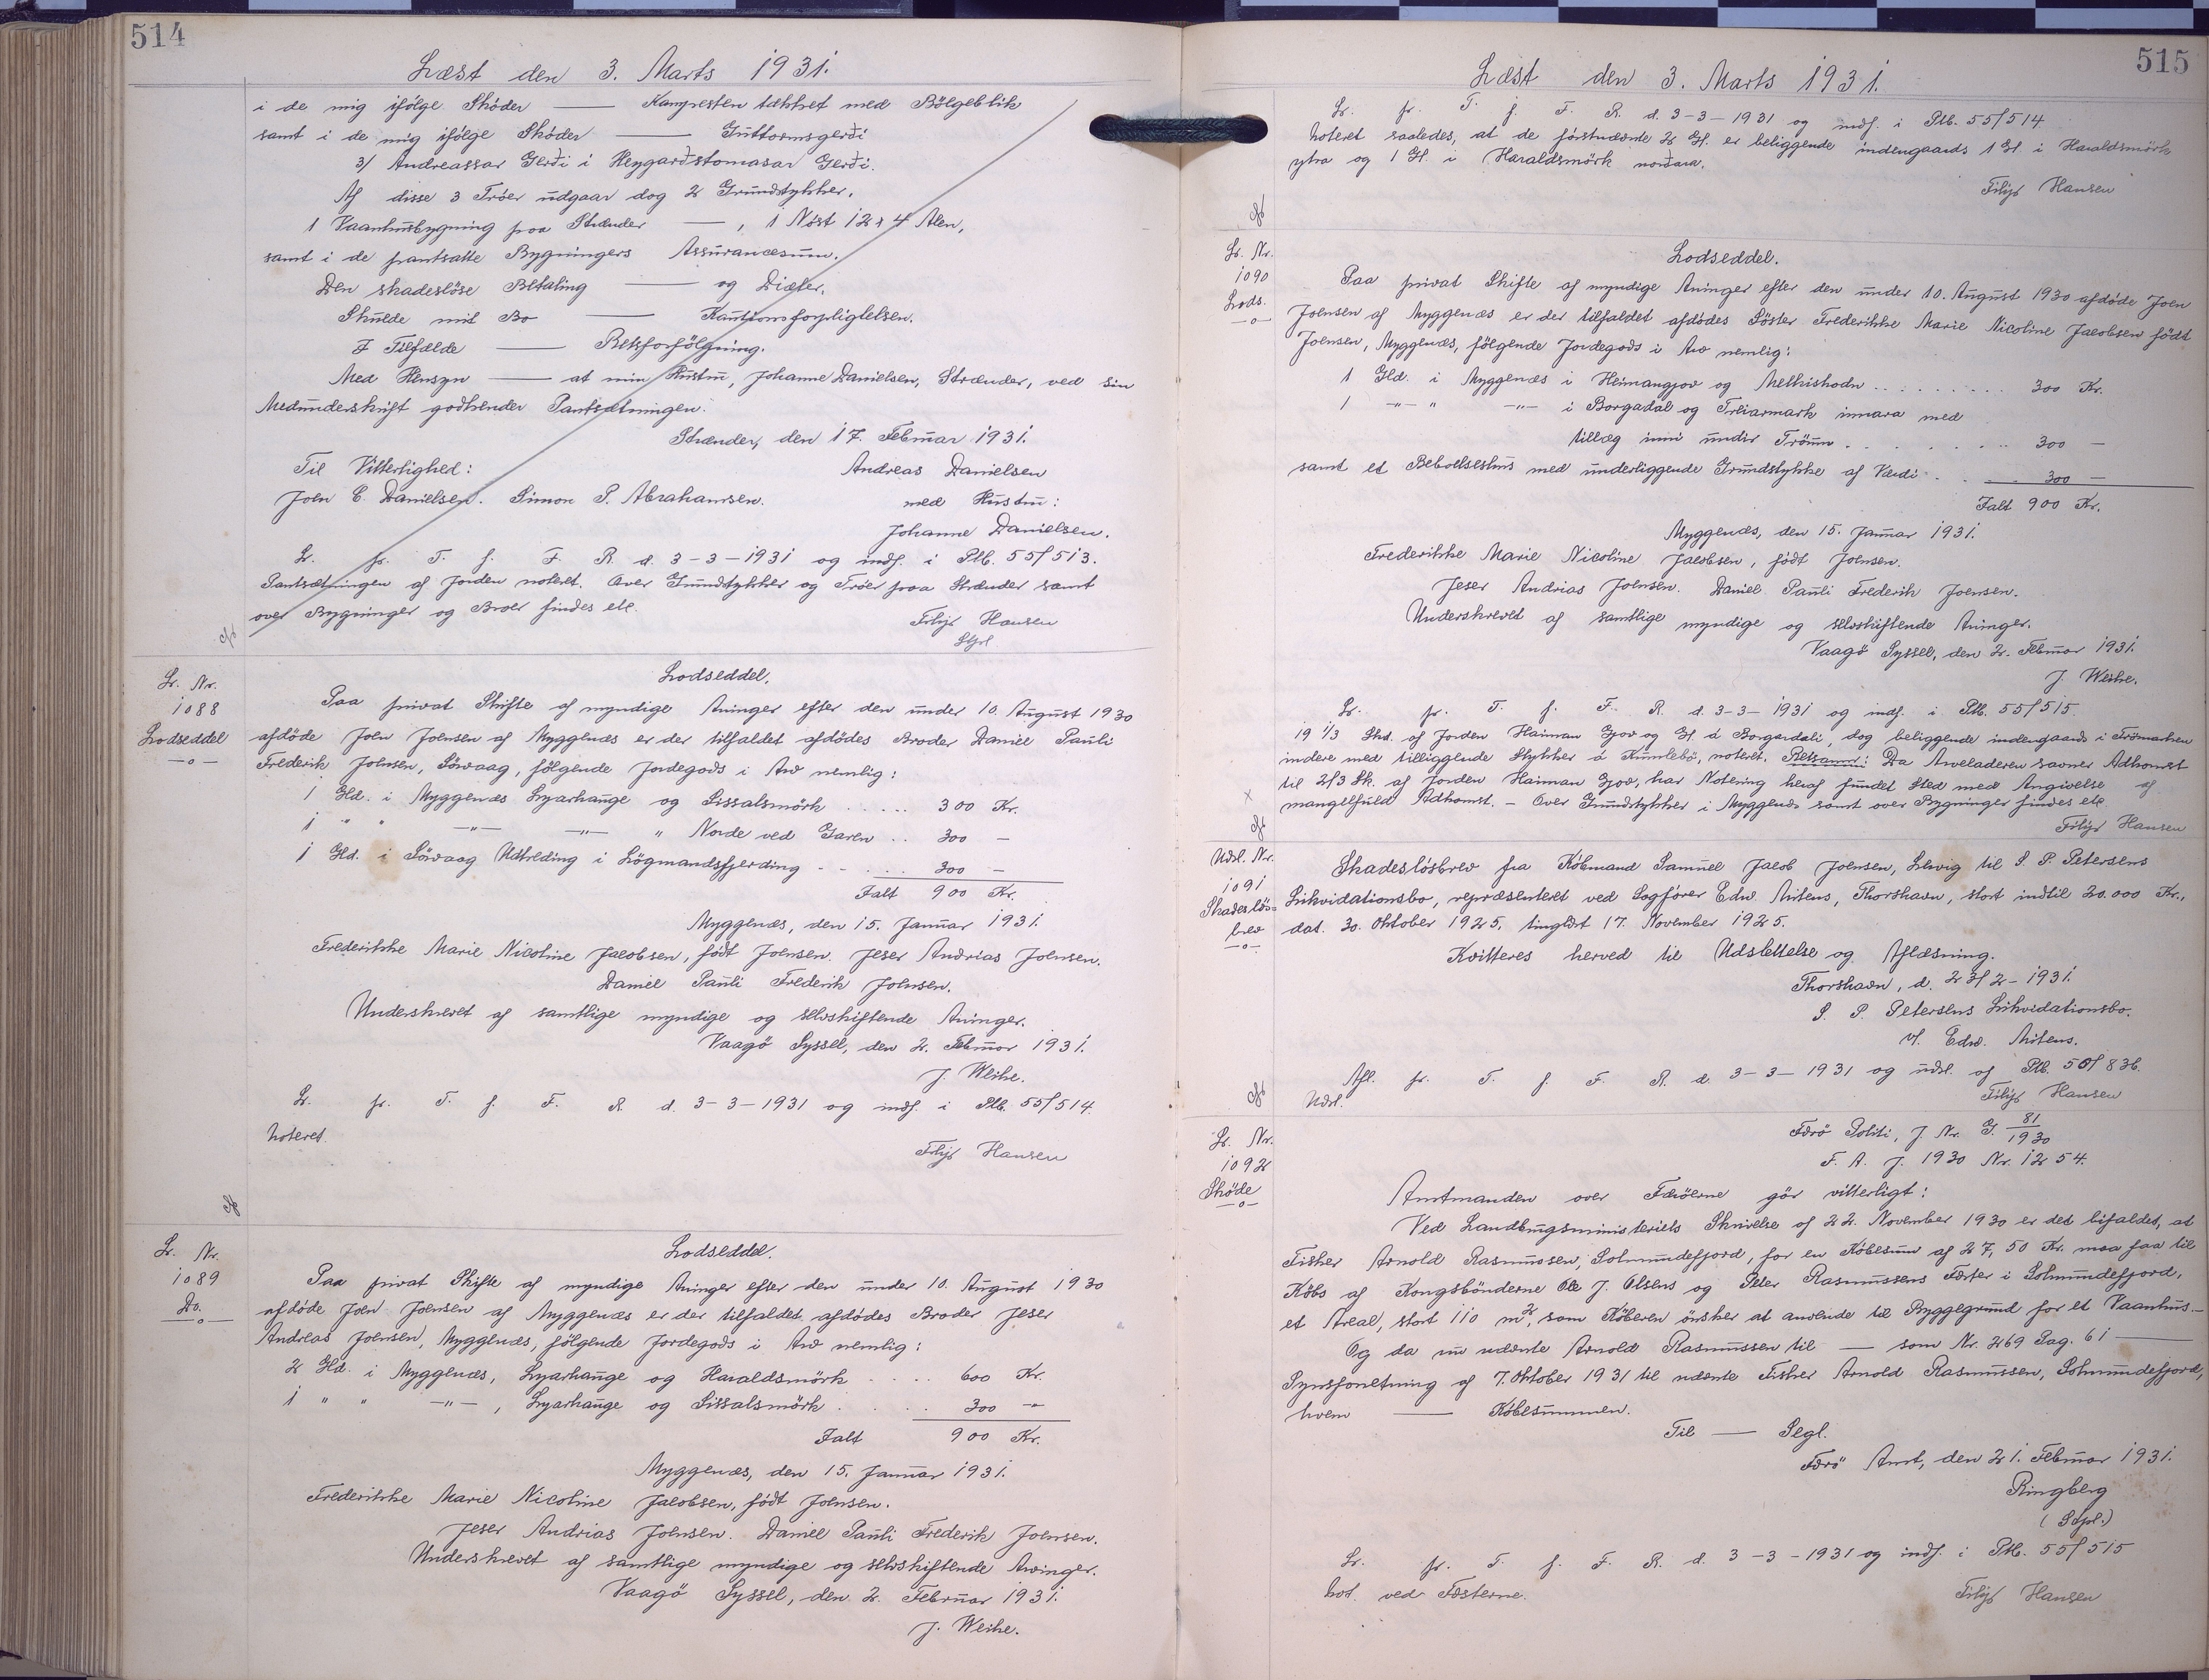 514
Læst den 3. Marts 1931.
i de mig ifølge Skøder — Kampesten tækket med Bölgeblik
samt i de mig ifølge Skøder — Guttormsgerði
3/ Andreassar Gerði i Heygarðstomasar Gerði.
Af disse 3 Tröer udgaar dog 2 Grundstykker.
1 Vaanhusbygning paa Strænder —, 1 Nöst 12 x 4 Alen,
samt i de pantsatte Bygningers Assurancesum.
Den skadeslöse Betaling — og Diæter.
Skulde mit Bo — Kautionsforpligtelsen.
I Tilfælde — Retsforfölgning.
Med Hensyn — at min Hustru, Johanne Danielsen, Strænder, ved sin
Medunderskrift godkender Pantsætningen.
Strænder, den 17. Februar 1931.
Til Vitterlighed: Andreas Danielsen
Joen C. Danielsen. Simon P. Abrahamsen. med Hustru:
Johanne Danielsen.
Lr. fr. T. f. F. R. d. 3-3-1931 og indf. i Ptb. 55/513.
Pantsætningen af Jorden noteret. Over Grundstykker og Tröer paa Strænder samt
over Bygninger og Broer findes etc.
Filip Hansen
Lr. Nr.
1088
Lodseddel
—o—
Lodseddel.
Paa privat Skifte af myndige Arvinger efter den under 10. August 1930
afdöde Joen Joensen af Myggenæs er der tilfaldet afdödes Broder Daniel Pauli
Frederik Joensen, Sörvaag, fölgende Jordegods i Arv nemlig:
1 Gld. i Myggenæs Lyarhauge og Sissalsmörk ..... 300 Kr.
1 " " —"— —"— " Norde ved Garen .. 300 —
1 Gld. i Sörvaag Udtreding i Lögmandsfjerding - - .... 300 —
Ialt 900 Kr.
Myggenæs, den 15. Januar 1931.
Frederikke Marie Nicoline Jacobsen, födt Joensen. Jeser Andrias Joensen.
Daniel Pauli Frederik Joensen.
Underskrevet af samtlige myndige og selvskiftende Arvinger.
Vaagö Syssel, den 2. Februar 1931.
J. Weihe.
Lr. fr. T. f. F. R. d. 3-3-1931 og indf. i Ptb. 55/514.
Noteret.
Filip Hansen
Lr. Nr.
1089
Do.
—o—
Lodseddel.
Paa privat Skifte af myndige Arvinger efter den under 10. August 1930
afdöde Joen Joensen af Myggenæs er der tilfaldet afdödes Broder Jeser
Andreas Joensen, Myggenæs, fölgende Jordegods i Arv nemlig:
2 Gld. i Myggenæs, Lyarhauge og Haraldsmörk .... 600 Kr.
1 " " —"—, Lyarhauge og Sissalsmörk .... 300 —
Ialt 900 Kr.
Myggenæs, den 15. Januar 1931.
Frederikke Marie Nicoline Jacobsen, födt Joensen.
Jeser Andrias Joensen. Daniel Pauli Frederik Joensen.
Underskrevet af samtlige myndige og selvskiftende Arvinger.
Vaagö Syssel, den 2. Februar 1931.
J. Weihe.
515
Læst den 3. Marts 1931.
Lr. fr. T. f. F. R. d. 3-3-1931 og indf. i Ptb. 55/514
Noteret saaledes, at de förstnævnte 2 Gl. er beliggende indengaards 1 Gl. i Haraldsmörk
ytra og 1 Gl. i Haraldsmörk norðara.
Filip Hansen
Lr. Nr.
1090
Lods.
—o—
Lodseddel.
Paa privat Skifte af myndige Arvinger efter den under 10. August 1930 afdöde Joen
Joensen af Myggenæs er der tilfaldet afdödes Söster Frederikke Marie Nicoline Jacobsen födt
Joensen, Myggenæs, fölgende Jordegods i Arv nemlig:
1 Gld. i Myggenæs i Heimangjov og Melkishodn .......... 300 Kr.
1 —"— " —"— i Borgadal og Treiarmark innara med
tillæg inni undir Trömn ......... 300 —
samt et Beboelseshus med underliggende Grundstykke af Værdi .... 300 —
Ialt 900 Kr.
Myggenæs, den 15. Januar 1931.
Frederikke Marie Nicoline Jacobsen, födt Joensen.
Jeser Andrias Joensen. Daniel Pauli Frederik Joensen.
Underskrevet af samtlige myndige og selvskiftende Arvinger.
Vaagö Syssel, den 2. Februar 1931.
J. Weihe.
Lr. fr. T. f. F. R. d. 3-3-1931 og indf. i Ptb. 55/515.
19 1/3 Skd. af Jorden Haiman Gjov og Gl. á Borgardali, dog beliggende indengaards i Trömarken
indere med tilliggende Stykker á Kumlebö, noteret. Retsanm: Da Arveladeren savner Adkomst
til 2/3 Sk. af Jorden Haiman Gjov, har Notering heraf fundet Sted med Angivelse af
mangelfuld Adkomst. - Over Grundstykker i Myggenæs samt over Bygninger findes etc.
Filip Hansen
Udsl. Nr.
1091
Skadeslös=
brev
—o—
Skadeslösbrev fra Köbmand Samuel Jacob Joensen, Selvig til S. P. Petersens
Likvidationsbo, repræsenteret ved Sagförer Edw. Mitens, Thorshavn, stort indtil 20.000 Kr.,
dat. 30. Oktober 1925, tinglæst 17. November 1925.
Kvitteres herved til Udslettelse og Aflæsning.
Thorshavn, d. 23/2-1931.
S. P. Petersens Likvidationsbo.
v/. Edw. Mitens.
Afl. fr. T. f. F. R. d. 3-3-1931 og udsl. af Ptb. 50/836.
Udsl. Filip Hansen
Lr. Nr.
1092
Skøde
—o—
Færö Politi, J. Nr. G. 81/1930
F. A. J. 1930 Nr. 1254.
Amtmanden over Færöerne gör vitterligt:
Ved Landbrugsministeriets Skrivelse af 22. November 1930 er det bifaldet, at
Fisker Arnold Rasmussen, Solmundefjord, for en Köbesum af 27,50 Kr. maa faa til
Köbs af Kongsbönderne Ole J. Olsens og Peter Rasmussens Fæster i Solmundefjord,
et Areal, stort 110 m², som Köberen önsker at anvende til Byggegrund for et Vaanhus—
Og da nu nævnte Arnold Rasmussen til — som Nr. 269 Pag. 61 —
Synsforretning af 7. Oktober 1931 til nævnte Fisker Arnold Rasmussen, Solmundefjord,
hvem — Köbesummen.
Til — Segl.
Færö Amt, den 21. Februar 1931.
Ringberg
Lr. fr. T. f. F. R. d. 3-3-1931 og indf. i Ptb. 55/515
Not. ved Fæsterne. Filip Hansen